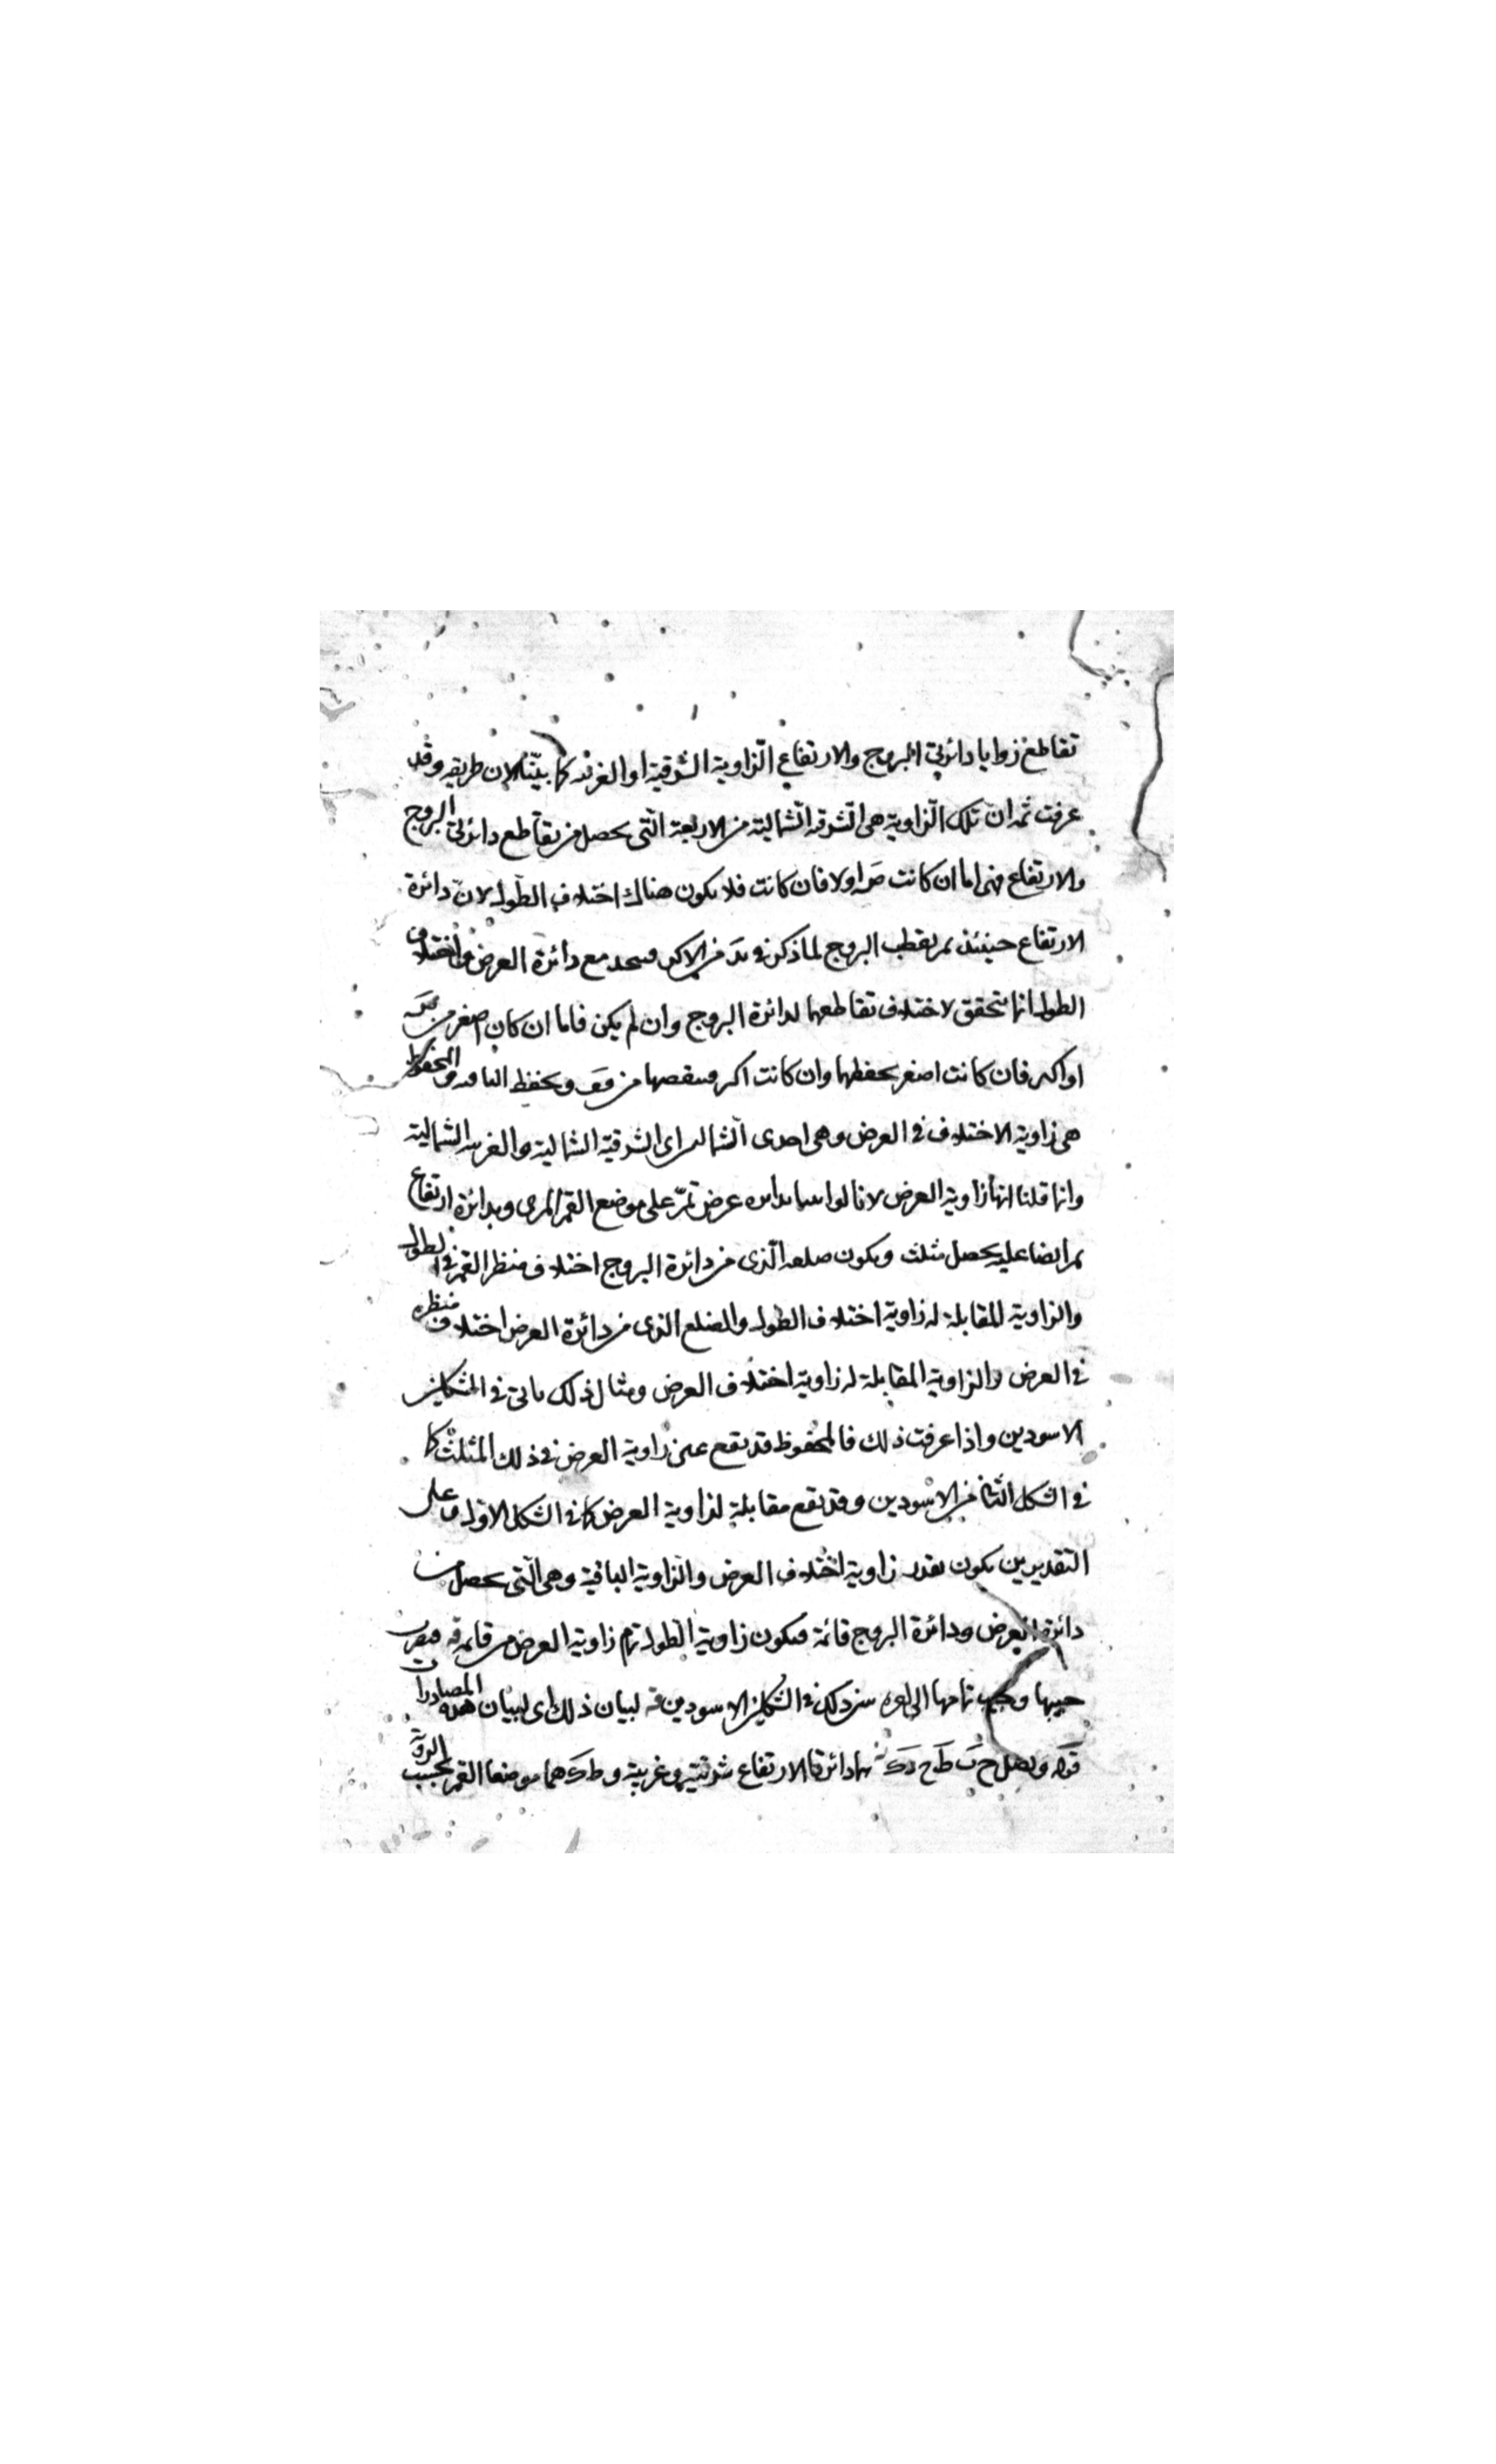 تقاطع زوايا دائرتى البروج والارتفاع الزاوية الشرقية او الغربية كما بينا الان طريقه وقد
عرفت ثمه ان تلك الزاوية هى الشرقية الشمالية من الاربعة التى يحصل من تقاطع دائرتى البروج
والارتفاع فهى اما ان كانت ص او لا فان كانت فلا يكون هناك اختلاف الطول لان دائرة
الارتفاع حينئذ يمر بقطب البروج لما ذكر فى من الاكر ويتحد مع دائرة العرض واختلاف
الطول انما يتحقق لاختلاف تقاطعهما لدائرة البروج وان لم يكن فاما ان كان اصغر من ص
او اكبر فان كانت اصغر يحفظها وان كانت اكبر ينقصها من قف ويحفظ الباقيه والمحفوظ
هى زاوية الاختلاف فى العرض وهى احدى الشماليين اى الشرقية الشمالية والغربية الشمالية
وانما قلنا انها زاوية العرض لانا لو اتينا بدايره عرض تمر على موضع القمر المرى وبدائرة ارتفاع
يمر ايضا عليه يحصل مثلث ويكون ضلعه الذى من دائرة البروج اختلاف منظر القمر فى الطول
والزاوية المقابلة له زاوية اختلاف الطول والضلع الذى من دائرة العرض اختلاف منظره
فى العرض والزاوية المقابلة له زاوية اختلاف العرض ومثال ذلك ياتى فى الشكلين
الاسودين واذا عرفت ذلك فالمحفوظ قد يقع عين زاوية العرض فى ذلك المثلث كما
فى الشكل الثانى من الاسودين وقد يقع مقابلة لزاوية العرض كما فى الشكل الاول وعلى
التقديرين يكون بقدر زاوية اختلاف العرض والزاوية الباقية وهى التى يحصل من
دائرة العرض ودائرة البروج قائمة فيكون زاوية الطول تمام زاوية العرض من قايمه قه فيضرب
جيبها وجيب تمامها الى اخره سنذكر فى الشكلين الاسودين قه لبيان ذلك اى لبيان هذه المصادرات
قوله ويصل ح ب ط ح د ك هما دائرتا الارتفاع شرقية وغربية و ط ك هما موضعا القمر بحسب الروية